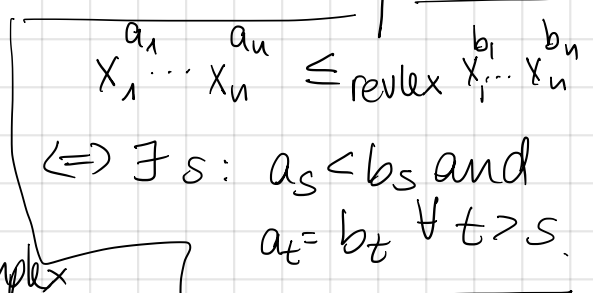 x₁^{a₁} ··· xₙ^{aₙ} ≤_{revlex} x₁^{b₁} ··· xₙ^{bₙ}
⟺ ∃ s: a_s < b_s and
a_t = b_t ∀ t > s.